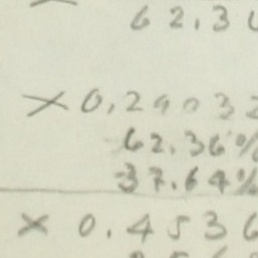 62.3
× 0,29032
62.36%
37.64%
× 0.4536